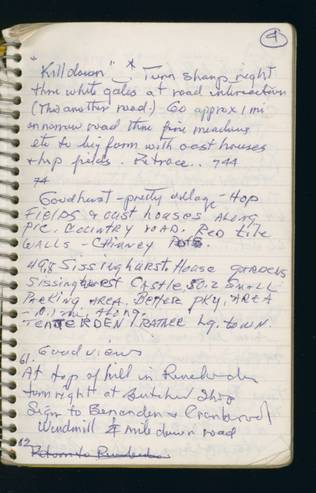 4
"Killdown" * Turn sharp right
thru white gates at road intersection
(Thru another road.) Go approx 1 mi
on narrow road thru fine meadows
etc to big farm with oast houses
& hop fields. Retrace.. 744
74
Goudhurst - pretty village - Hop
FIELDS & oast houses ALONG
PIC. COUNTRY ROAD. RED TILE
WALLS - CHIMNEY POTS.
49.8 Sissinghurst. House GARDENS
Sissinghurst CASTLE, 50.2 SMALL
PARKING AREA. BETTER PKG, AREA
- 0.1 mi, along.
TENTERDEN / RATHER LG. TOWN.
Good views
61.
At top of hill in
turn right at Butcher Shop
Sign to Benenden & Cranbrook
Windmill mile down road
62
Return to